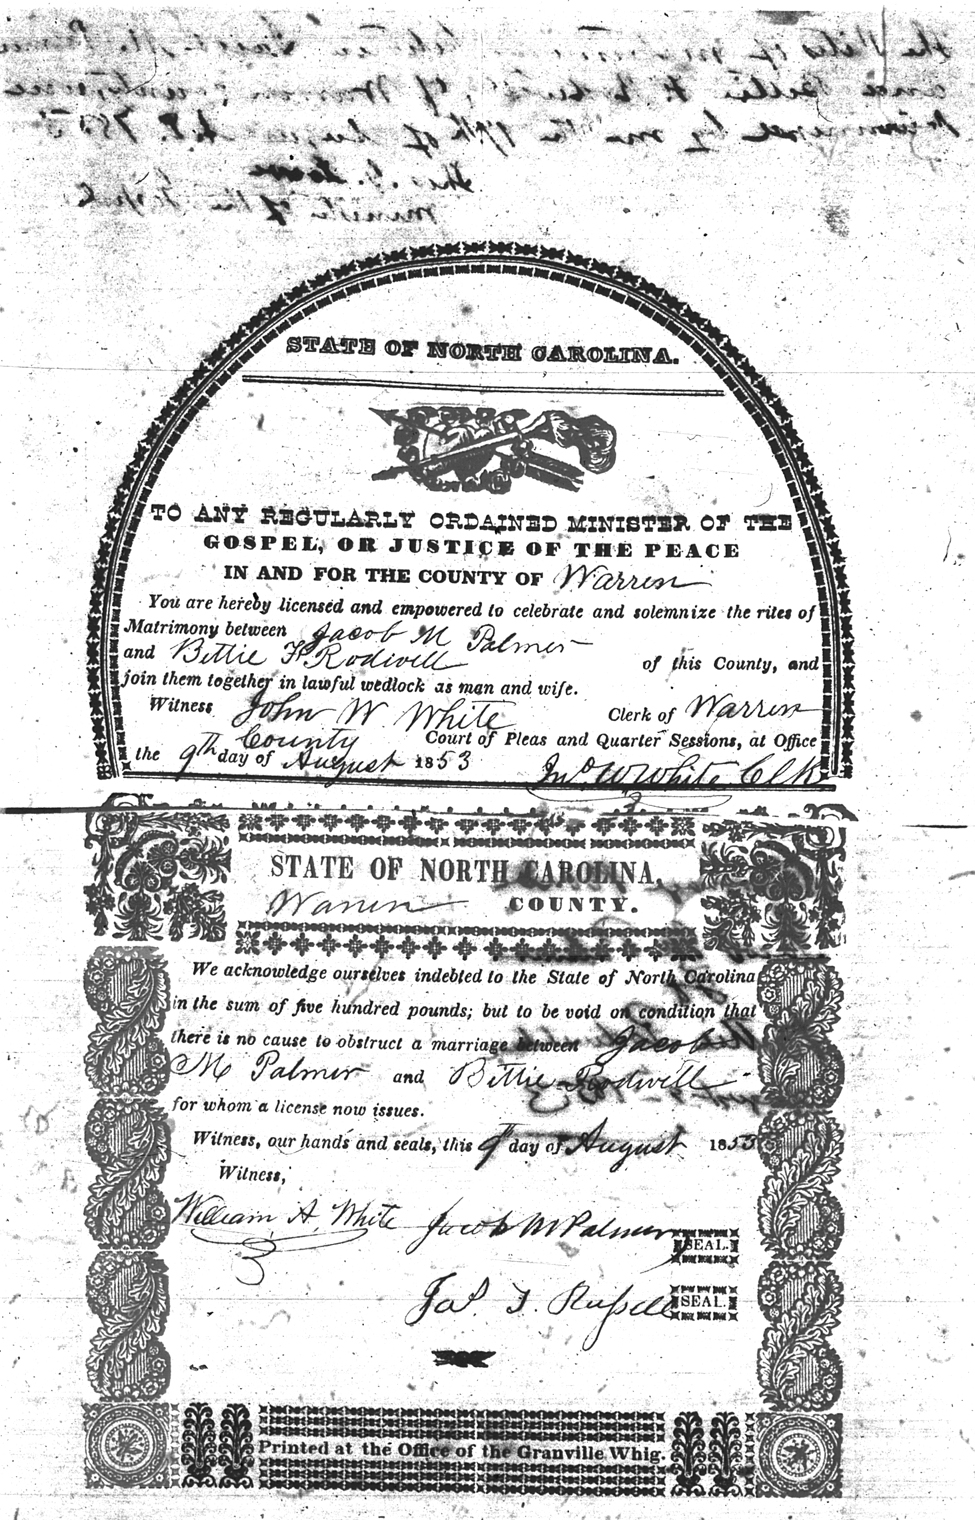 the Rites of matrimony
and Bettie F. of Warren
by me the of August A.D. 1853
Tho. G. Lowe
of the Gospel
STATE OF NORTH CAROLINA.
TO ANY REGULARLY ORDAINED MINISTER OF THE
GOSPEL, OR JUSTICE OF THE PEACE
IN AND FOR THE COUNTY OF Warren
You are hereby licensed and empowered to celebrate and solemnize the rites of
Matrimony between Jacob M Palmer
and Bettie F. Rodwell of this County, and
join them together in lawful wedlock as man and wife.
Witness John W. White Clerk of Warren
County Court of Pleas and Quarter Sessions, at Office
the 9th day of August 1853 Jno W White Clk
STATE OF NORTH CAROLINA,
Warren COUNTY.
We acknowledge ourselves indebted to the State of North Carolina
in the sum of five hundred pounds; but to be void on condition that
there is no cause to obstruct a marriage between Jacob
M Palmer and Bettie Rodwell
for whom a license now issues.
Witness, our hands and seals, this 9th day of August 1853
Witness,
William A. White Jacob M Palmer SEAL.
Jas. T. Russell SEAL.
Printed at the Office of the Granville Whig.